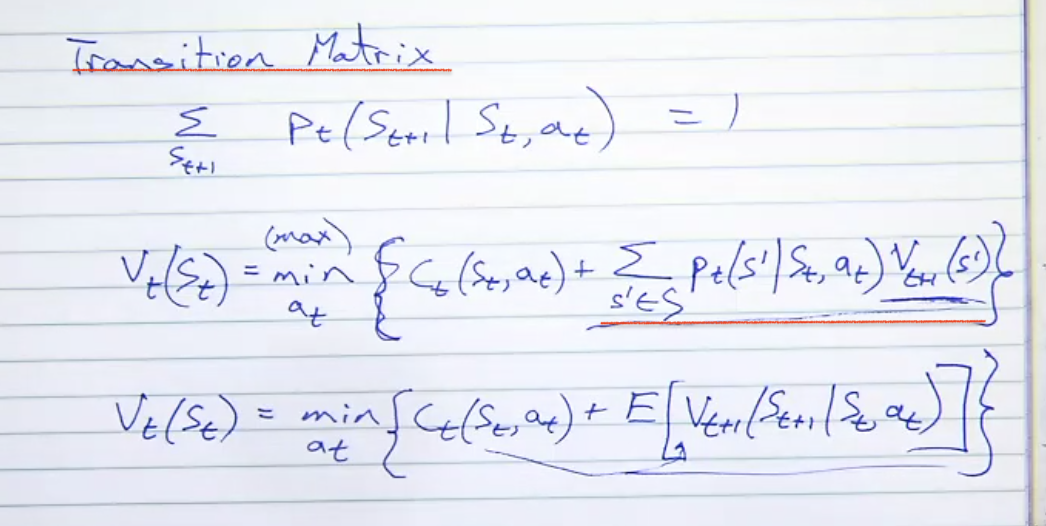 Transition Matrix
Σ_{S_{t+1}} P_t(S_{t+1} | S_t, a_t) = 1
(max)
V_t(S_t) = min_{a_t} { C_t(S_t, a_t) + Σ_{s'∈S} P_t(s' | S_t, a_t) V_{t+1}(s') }
V_t(S_t) = min_{a_t} { C_t(S_t, a_t) + E[V_{t+1}(S_{t+1} | S_t, a_t)] }